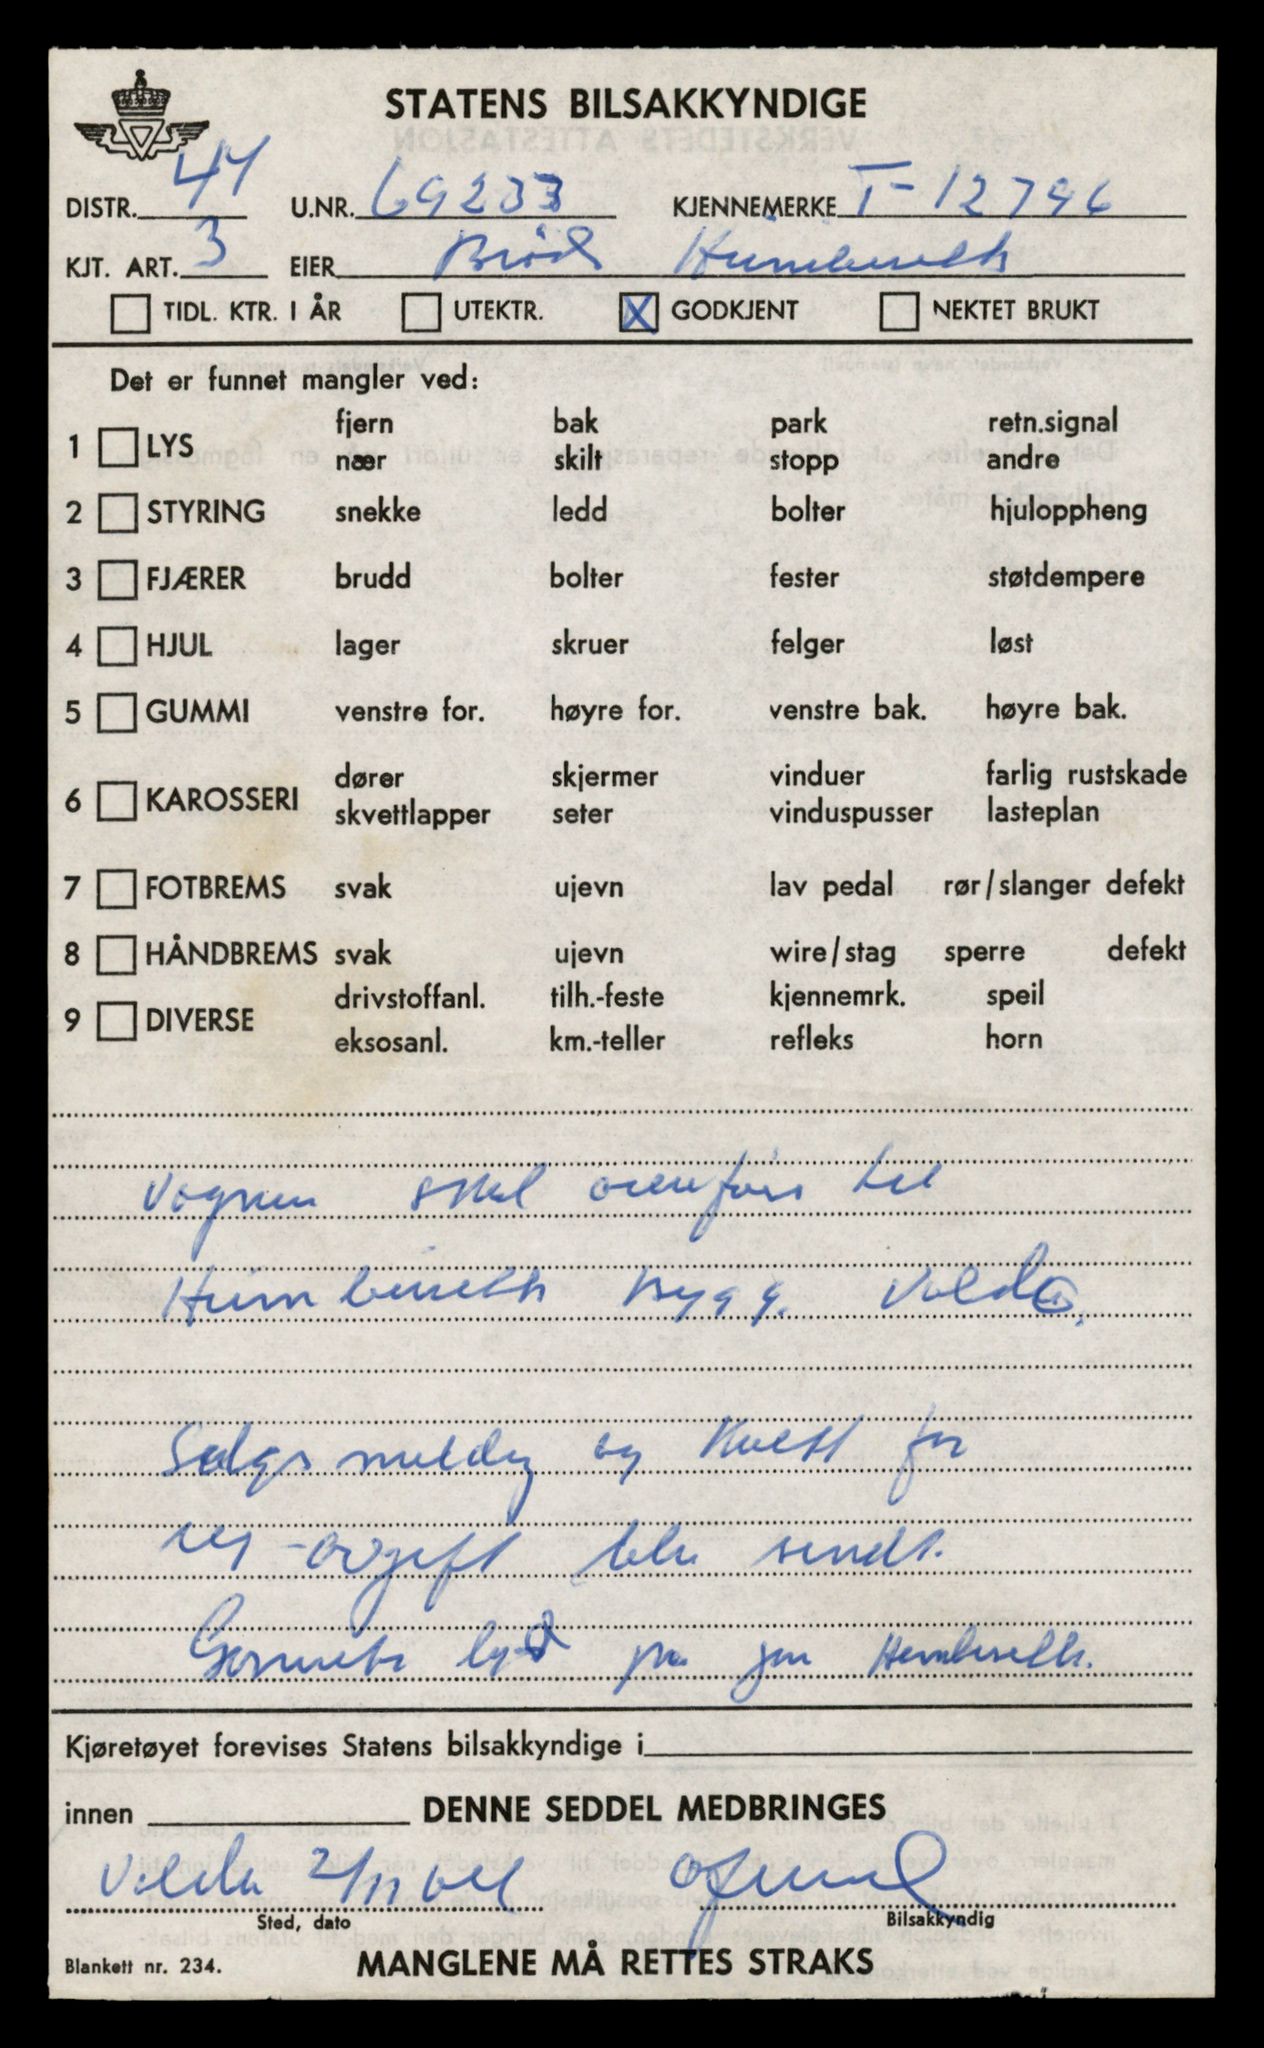 STATENS BILSAKKYNDIGE
DISTR. 44 U.NR. 69233 KJENNEMERKE T-12796
KJT. ART. 3 EIER Brød. Humberseth
TIDL. KTR. I ÅR UTEKTR. X GODKJENT NEKTET BRUKT
Det er funnet mangler ved:
1 LYS fjern bak park retn.signal
nær skilt stopp andre
2 STYRING snekke ledd bolter hjuloppheng
3 FJÆRER brudd bolter fester støtdempere
4 HJUL lager skruer felger løst
5 GUMMI venstre for. høyre for. venstre bak. høyre bak.
6 KAROSSERI dører skjermer vinduer farlig rustskade
skvettlapper seter vinduspusser lasteplan
7 FOTBREMS svak ujevn lav pedal rør/slanger defekt
8 HÅNDBREMS svak ujevn wire/stag sperre defekt
9 DIVERSE drivstoffanl. tilh.-feste kjennemrk. speil
eksosanl. km.-teller refleks horn
Vognen skal overføres til
Humberseth bygg. Volda.
Salgsmelding og kvitt for
reg-avgift blir sendt.
lyd på Humberseth.
Kjøretøyet forevises Statens bilsakkyndige i
innen DENNE SEDDEL MEDBRINGES
Volda 2/11 64
Sted, dato Bilsakkyndig
Blankett nr. 234. MANGLENE MÅ RETTES STRAKS